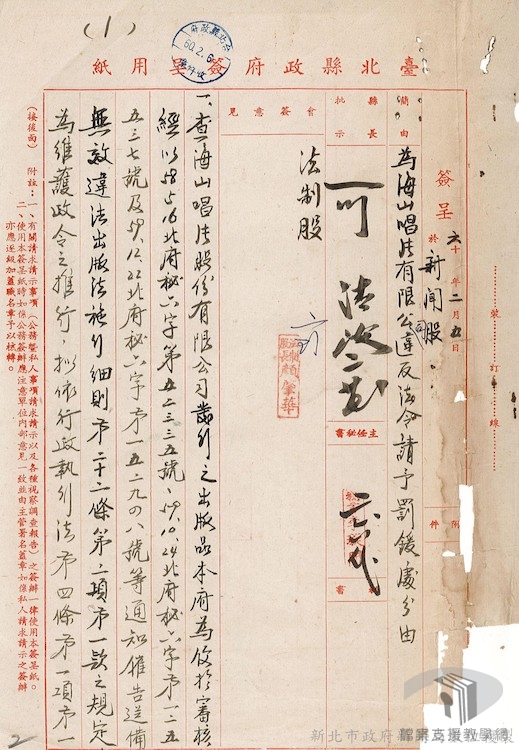 (1)
臺北縣政府
60.2.6
臺北縣政府簽呈用紙
簽呈 於 六十年二月五日
新聞股
裝 訂 線
簡由
為海山唱片有限公司違反法令請予罰鍰處分由
附件
縣長批示
可
主任秘書
秘書
會簽意見
法制股
一、查海山唱片股份有限公司發行之出版品本府為便於審核
經以58.5.16北府秘六字第五二三三五號、59.10.24北府秘六字第一二五
五三七號及59.12.22北府秘六字第一五二九四八號等通知催告送備
無效違法出版法施行細則第二十二條第二項第一款之規定
為維護政令之推行,擬依行政執行法第四條第一項第一
(接後面)
附註:一、有關請求請示事項(公務暨私人事項請求請示以及各種視察調查報告)之簽辦一律使用本簽呈紙。
二、使用本簽呈紙時如係公務簽辦應注意單位內部意見一致並由主管署名蓋章如係私人請求請示之簽辦
亦應逐級加蓋職名章予以核轉。
2
新北市政府
檔案支援教學網